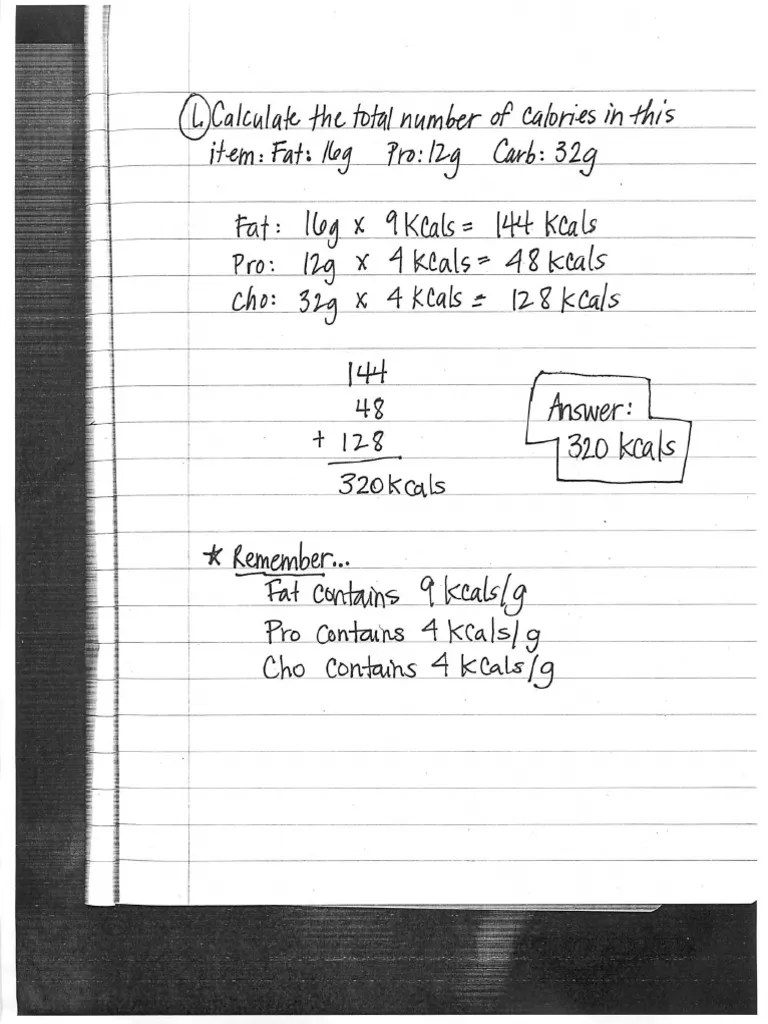 1. Calculate the total number of calories in this
item: Fat: 16g Pro: 12g Carb: 32g
Fat: 16g x 9 Kcals = 144 Kcals
Pro: 12g x 4 Kcals = 48 kcals
Cho: 32g x 4 Kcals = 128 kcals
144
48
+ 128
320 kcals
Answer:
320 kcals
* Remember...
Fat contains 9 kcals/g
Pro contains 4 kcals/g
Cho contains 4 kcals/g